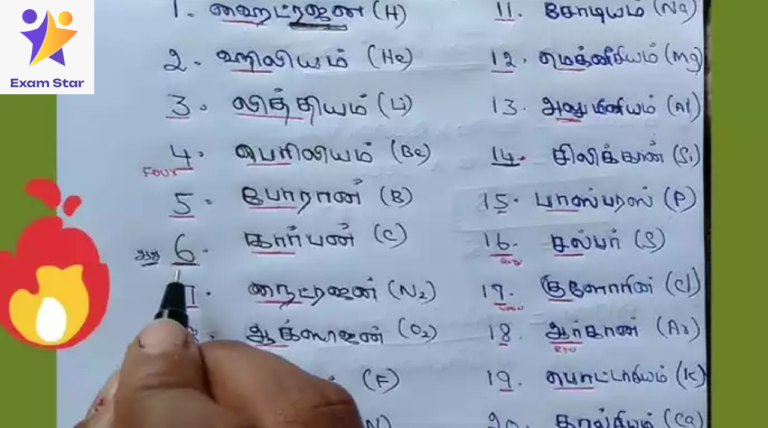 Exam Star
1. ஹைட்ரஜன் (H)
2. ஹீலியம் (He)
3. லித்தியம் (Li)
4. பெரிலியம் (Be)
Four
5. போரான் (B)
6. கார்பன் (C)
7. நைட்ரஜன் (N2)
8. ஆக்ஸிஜன் (O2)
(F)
11. சோடியம் (Na)
12. மெக்னீசியம் (Mg)
13. அலுமினியம் (Al)
14. சிலிக்கான் (Si)
15. பாஸ்பரஸ் (P)
16. சல்பர் (S)
17. குளோரின் (Cl)
18. ஆர்கான் (Ar)
19. பொட்டாசியம் (K)
20. கால்சியம் (Ca)